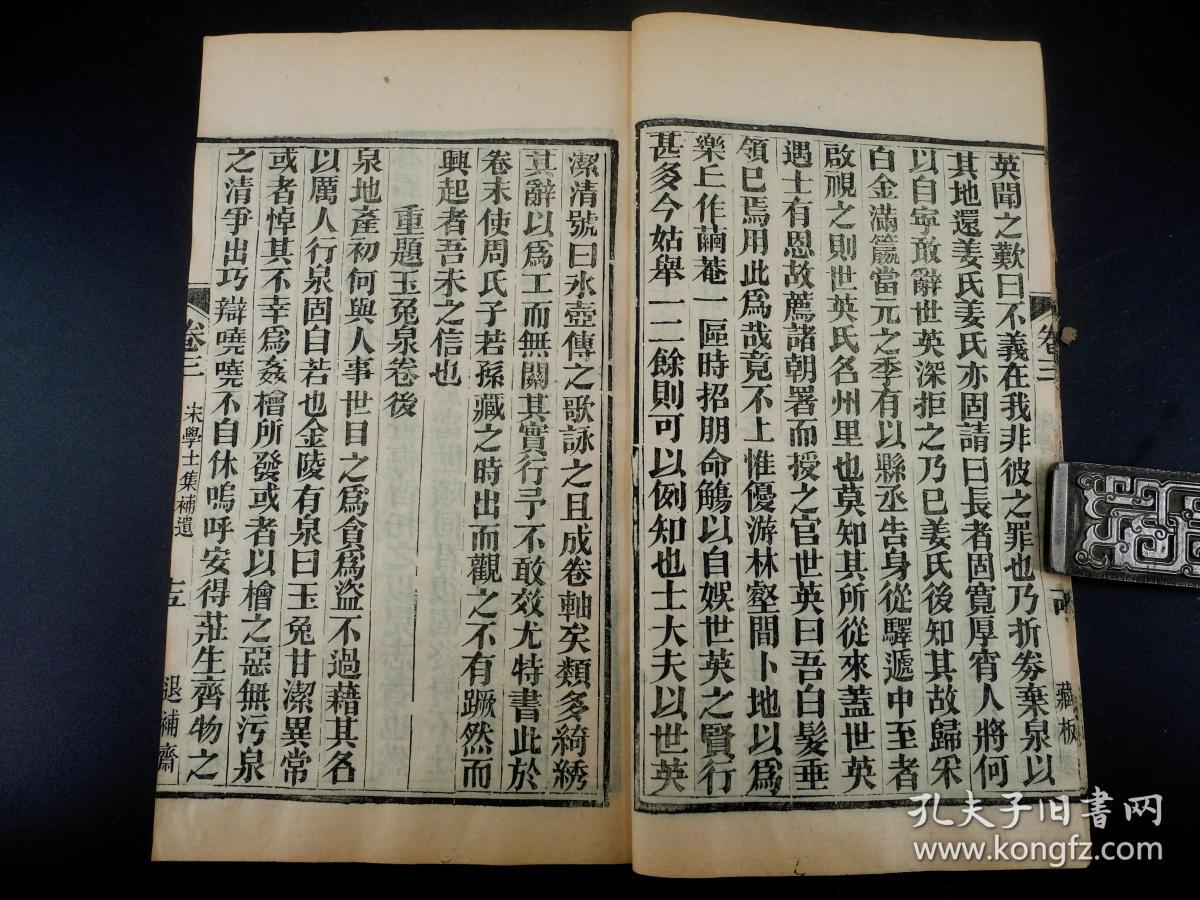 英聞之歎曰不義在我非彼之罪也乃折券棄泉以
其地還姜氏姜氏亦固請曰長者固寬厚宵人將何
以自寧敢辭世英深拒之乃已姜氏後知其故歸采
白金滿籯當元之季有以縣丞告身從驛遞中至者
啟視之則世英氏名州里也莫知其所從來蓋世英
遇士有恩故薦諸朝署而授之官世英曰吾白髮垂
領巳焉用此爲哉竟不上惟優游林壑間卜地以爲
樂丘作繭菴一區時招朋命觴以自娛世英之賢行
甚多今姑舉一二餘則可以例知也士大夫以世英
卷三
藏板
潔清號曰氷壺傳之歌詠之且成卷軸矣類多綺綉
其辭以爲工而無關其實行予不敢效尤特書此於
卷末使周氏子若孫藏之時出而觀之不有蹶然而
興起者吾未之信也
重題玉兔泉卷後
泉地產初何與人事世目之爲貪爲盜不過藉其名
以厲人行泉固自若也金陵有泉曰玉兔甘潔異常
或者悼其不幸爲姦檜所發或者以檜之惡無污泉
之清爭出巧辯嘵嘵不自休嗚呼安得莊生齊物之
卷三
宋學士集補遺
十五
退補齋
孔夫子旧书网
www.kongfz.com